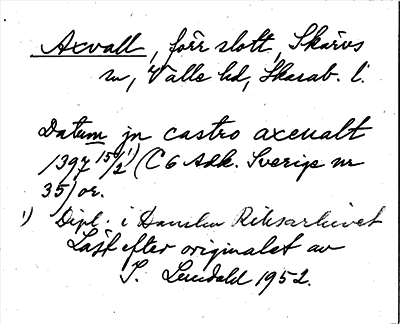 Axvall, förr slott, Skärvs
sn, Valle hd, Skarab. l.
Datum jn castro axeualt
1397 15/2 1) (C6 Adk. Sverige nr
35) or.
1) Dipl. i Danska Riksarkivet
Läst efter originalet av
I. Lundahl 1952.